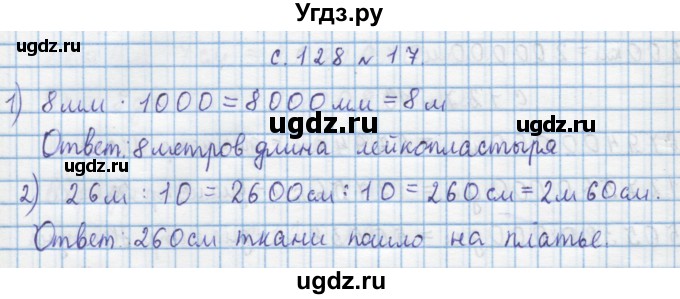 Угдз.ру
с. 128 № 17.
1) 8мм · 1000 = 8000мм = 8м
Ответ: 8метров длина лейкопластыря
2) 26м : 10 = 2600см : 10 = 260см = 2м 60см.
Ответ: 260см ткани пошло на платье.
ugdz.ru
ugdz.ru
ugdz.ru
ugdz.ru
ugdz.ru
ugdz.ru
ugdz.ru
ugdz.ru